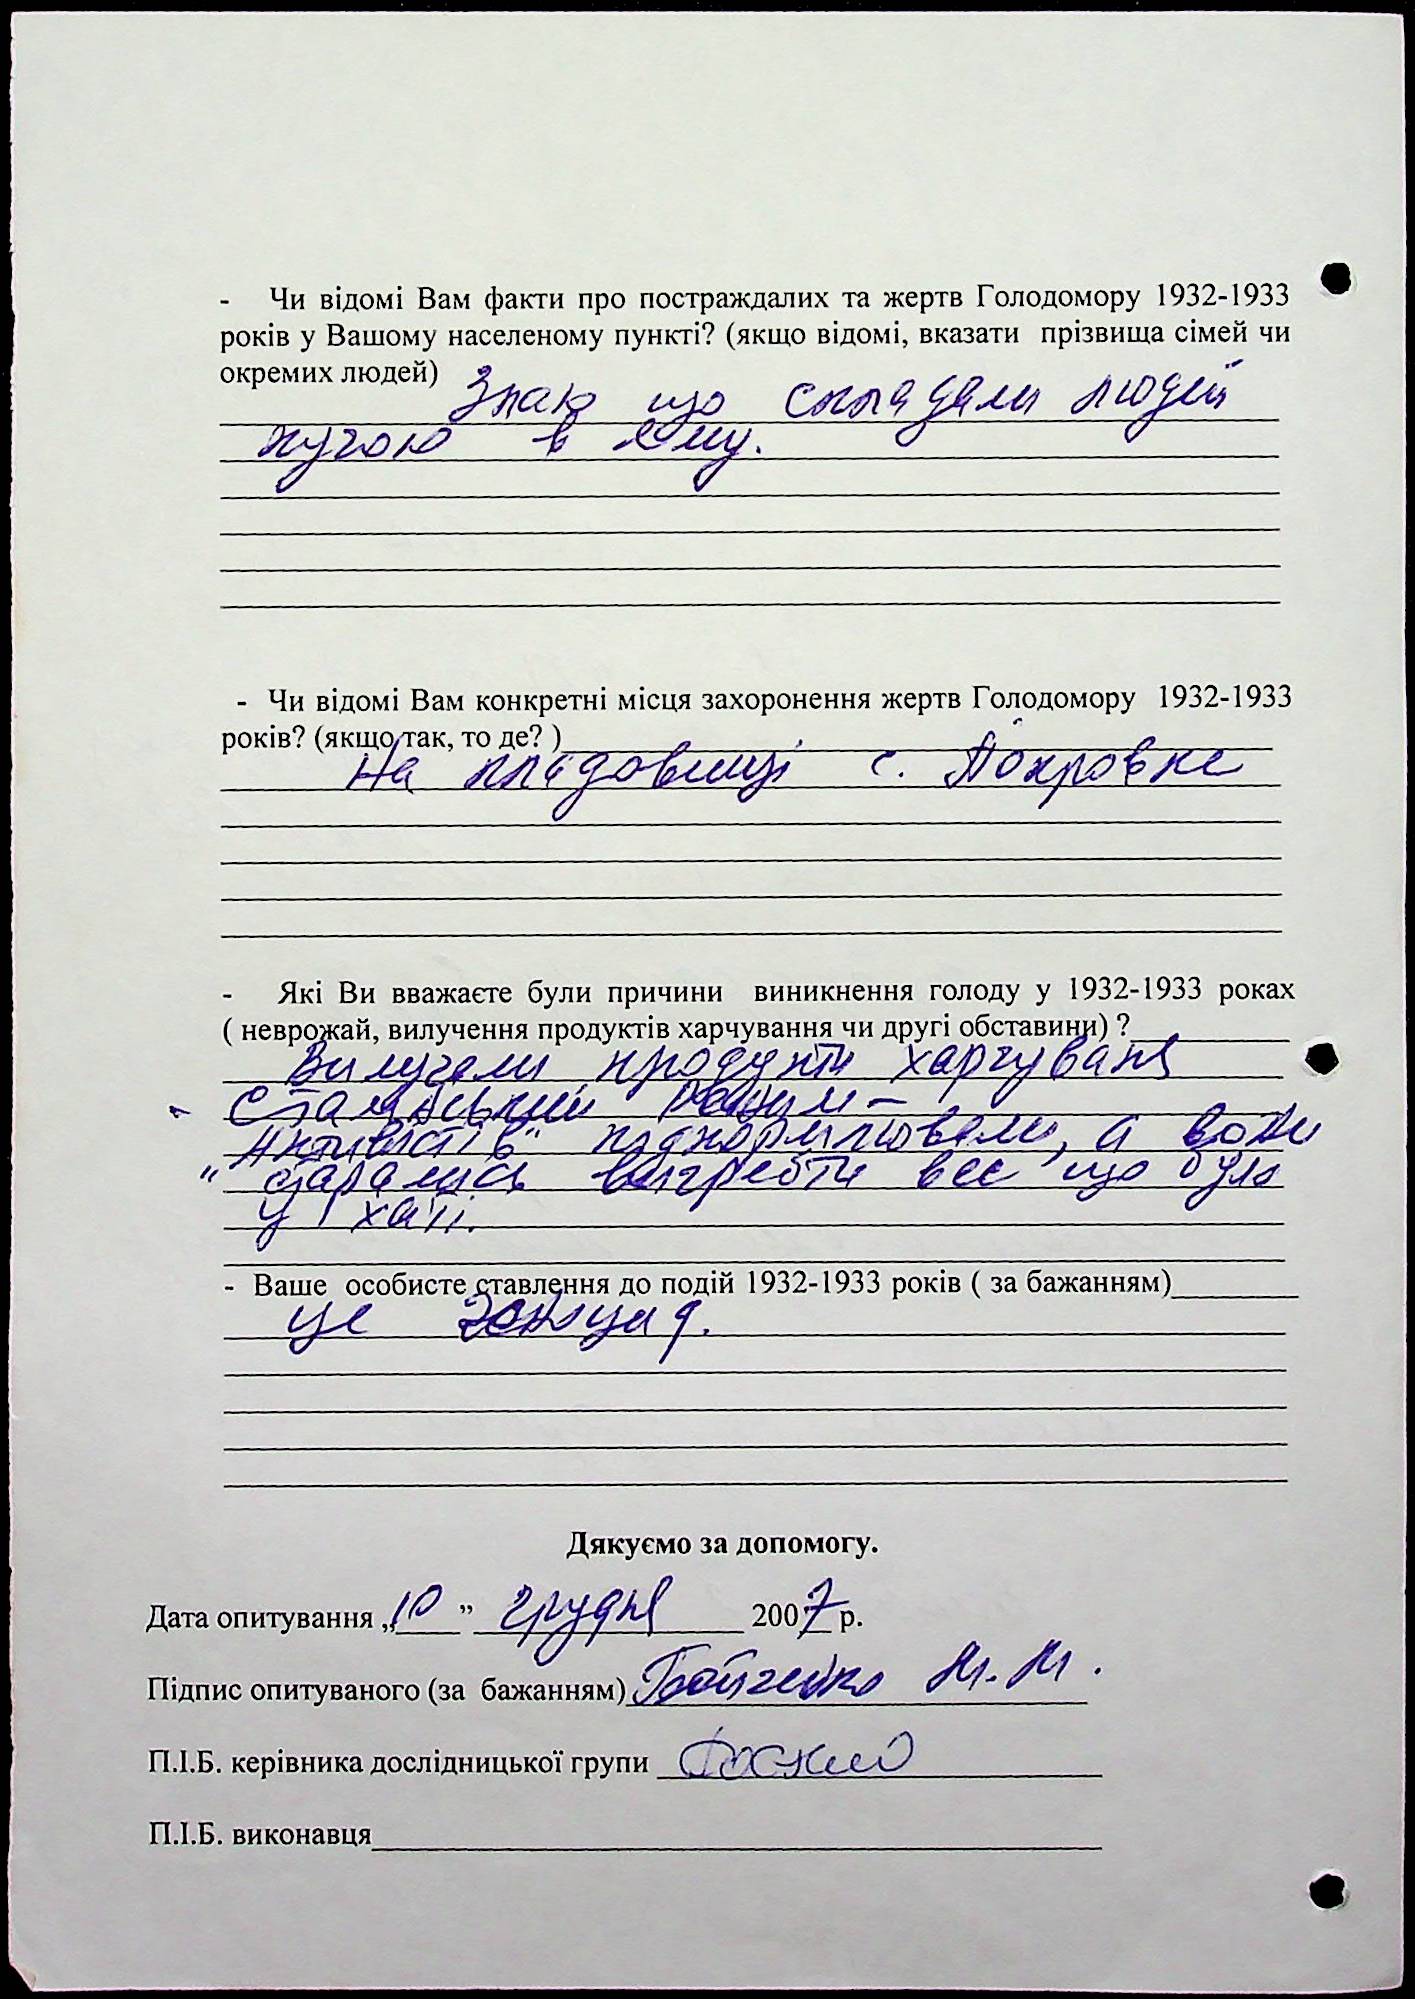 - Чи відомі Вам факти про постраждалих та жертв Голодомору 1932-1933
років у Вашому населеному пункті? (якщо відомі, вказати прізвища сімей чи
окремих людей)
Знаю що складали людей
кучою в яму.
- Чи відомі Вам конкретні місця захоронення жертв Голодомору 1932-1933
років? (якщо так, то де? )
На кладовищі с. Покровка
- Які Ви вважаєте були причини виникнення голоду у 1932-1933 роках
( неврожай, вилучення продуктів харчування чи другі обставини) ?
Вилучали продукти харчуваня
Сталінський режим -
"Активістів" підкормлювали, а вони
старались вигребти все що було
у хаті.
- Ваше особисте ставлення до подій 1932-1933 років ( за бажанням)
це геноцид.
Дякуємо за допомогу.
Дата опитування „10” грудня 2007 р.
Підпис опитуваного (за бажанням) Бойченко М. М.
П.І.Б. керівника дослідницької групи
П.І.Б. виконавця